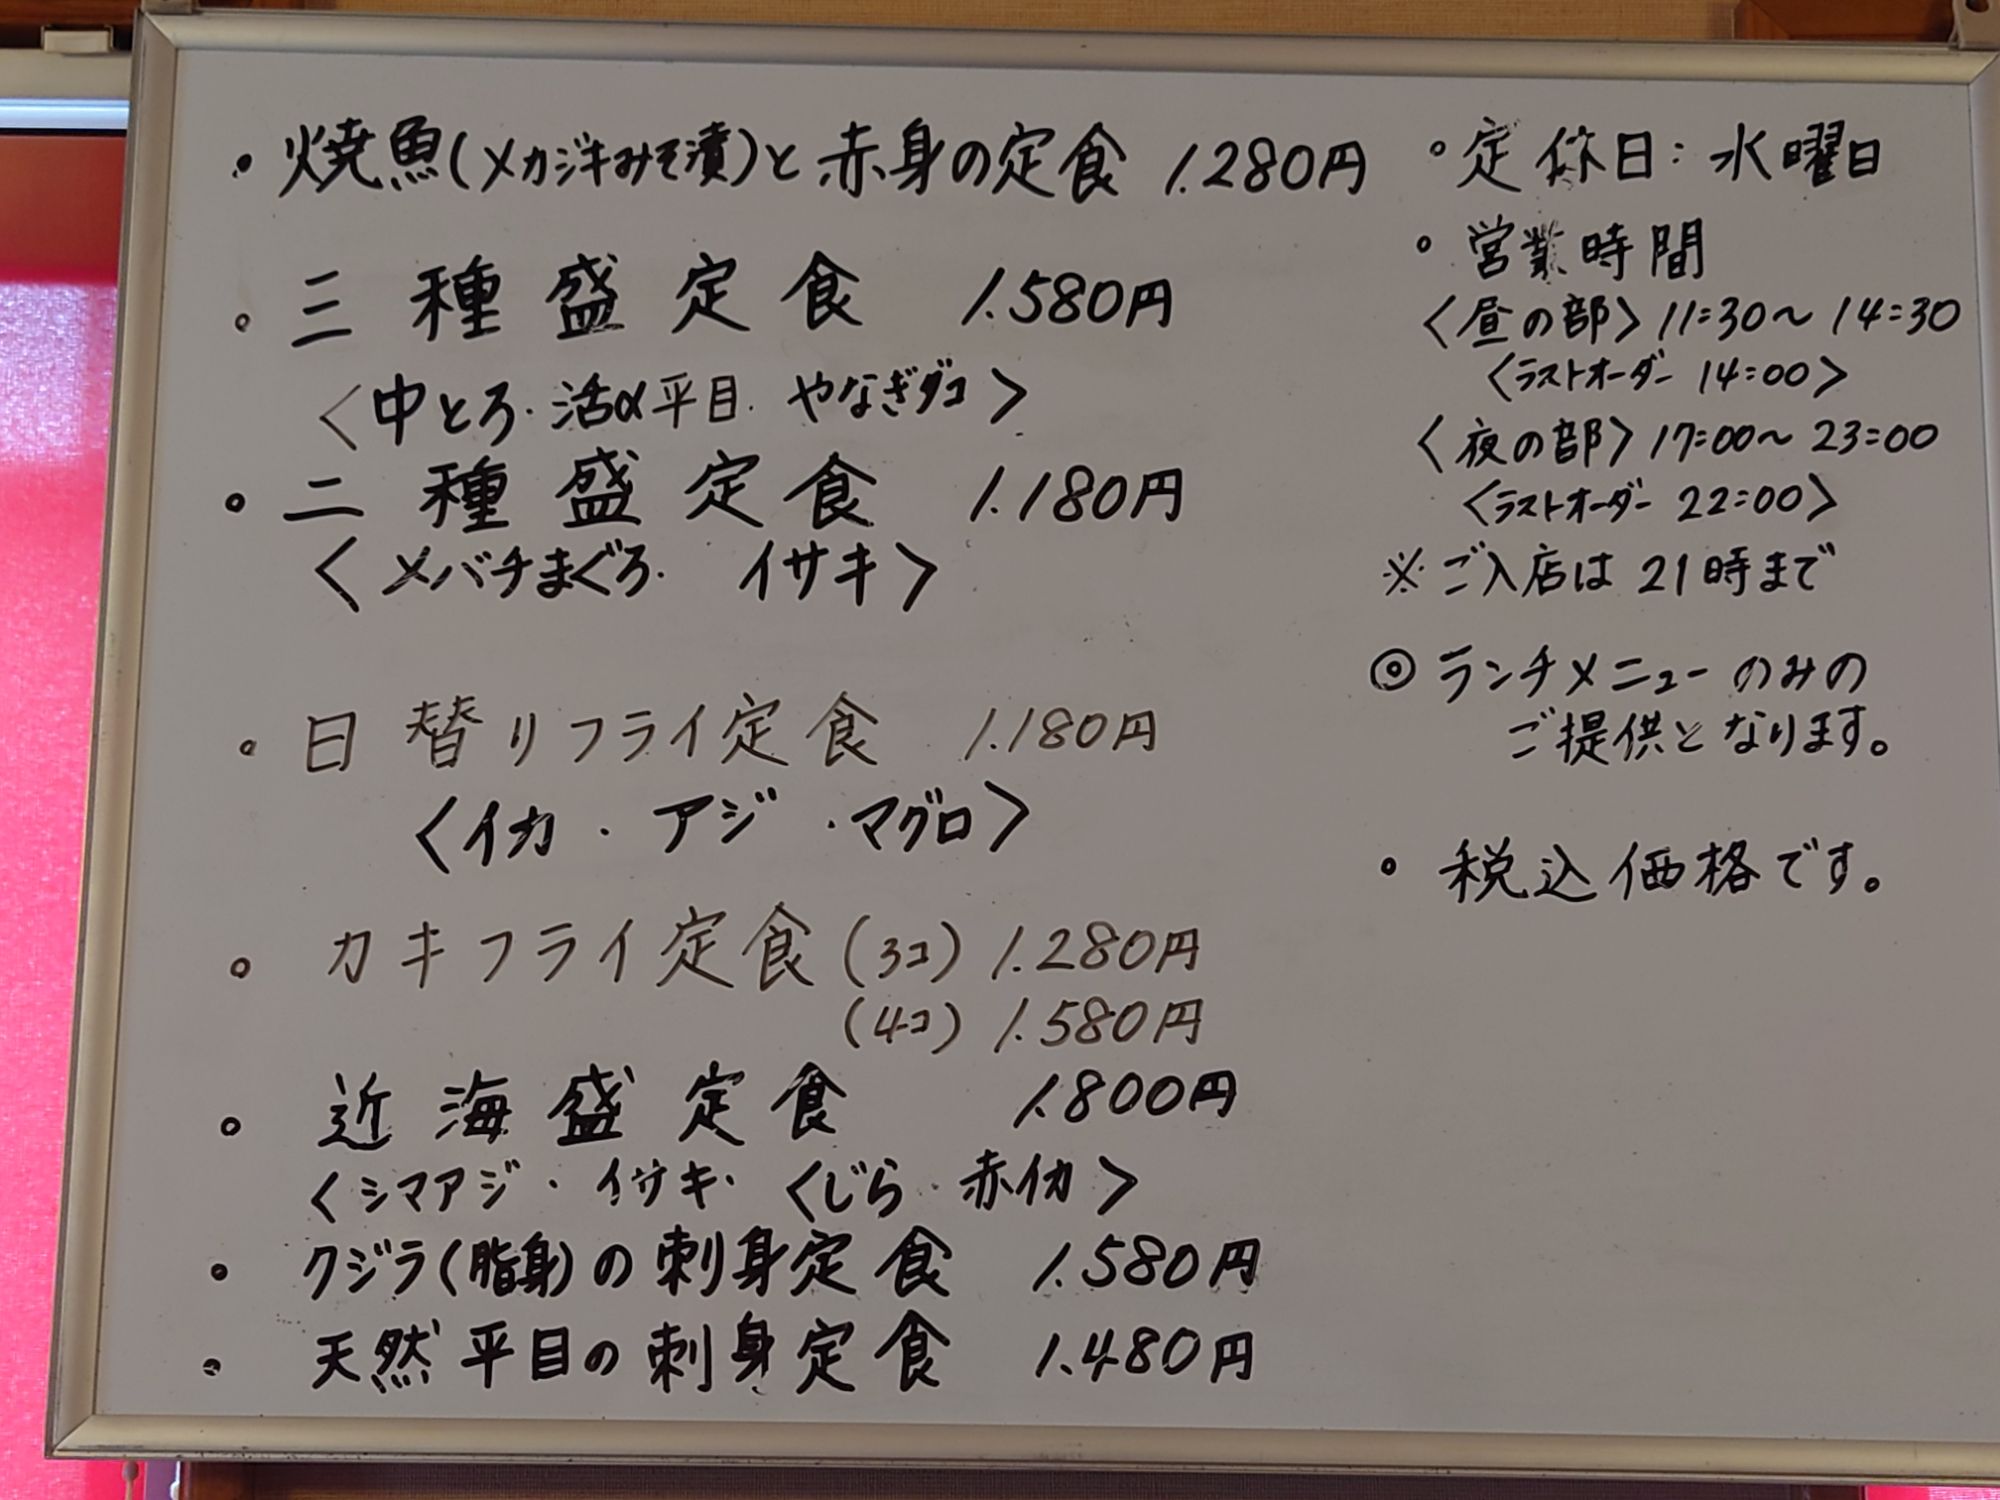 ・焼魚(メカジキみそ漬)と赤身の定食 1.280円
。三種盛定食 1.580円
〈中とろ・活〆平目・やなぎダコ〉
。二種盛定食 1.180円
〈メバチまぐろ・イサキ〉
。日替りフライ定食 1.180円
〈イカ・アジ・マグロ〉
。カキフライ定食(3コ) 1.280円
(4コ) 1.580円
。近海盛定食 1.800円
〈シマアジ・イサキ・くじら・赤イカ〉
。クジラ(脂身)の刺身定食 1.580円
。天然平目の刺身定食 1.480円
。定休日:水曜日
。営業時間
〈昼の部〉11:30〜14:30
〈ラストオーダー 14:00〉
〈夜の部〉17:00〜23:00
〈ラストオーダー 22:00〉
※ご入店は21時まで
◎ランチメニューのみの
ご提供となります。
。税込価格です。